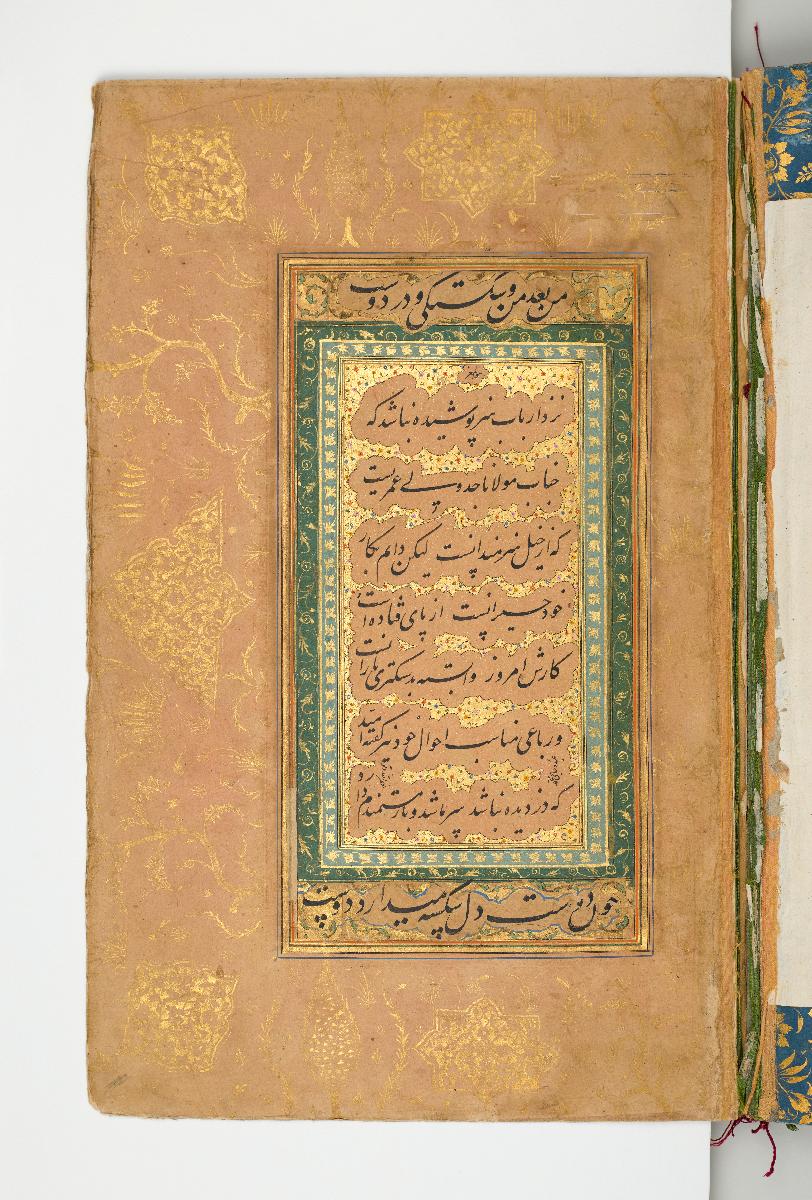 من بعد من و شکستگی و در دوست
نزد ارباب هنر پوشیده نباشد که
جناب مولانا جدولی عمریست
که از خیل هنرمندانست لیکن دایم بکار
خود حیرانست از پای فتاده است
کارش امروز وابسته بدستگیری یارانست
و رباعی مناسب احوال خود نیز گفته امید
که دزدیده نباشد
چون دوست دل شکسته میدارد دوست